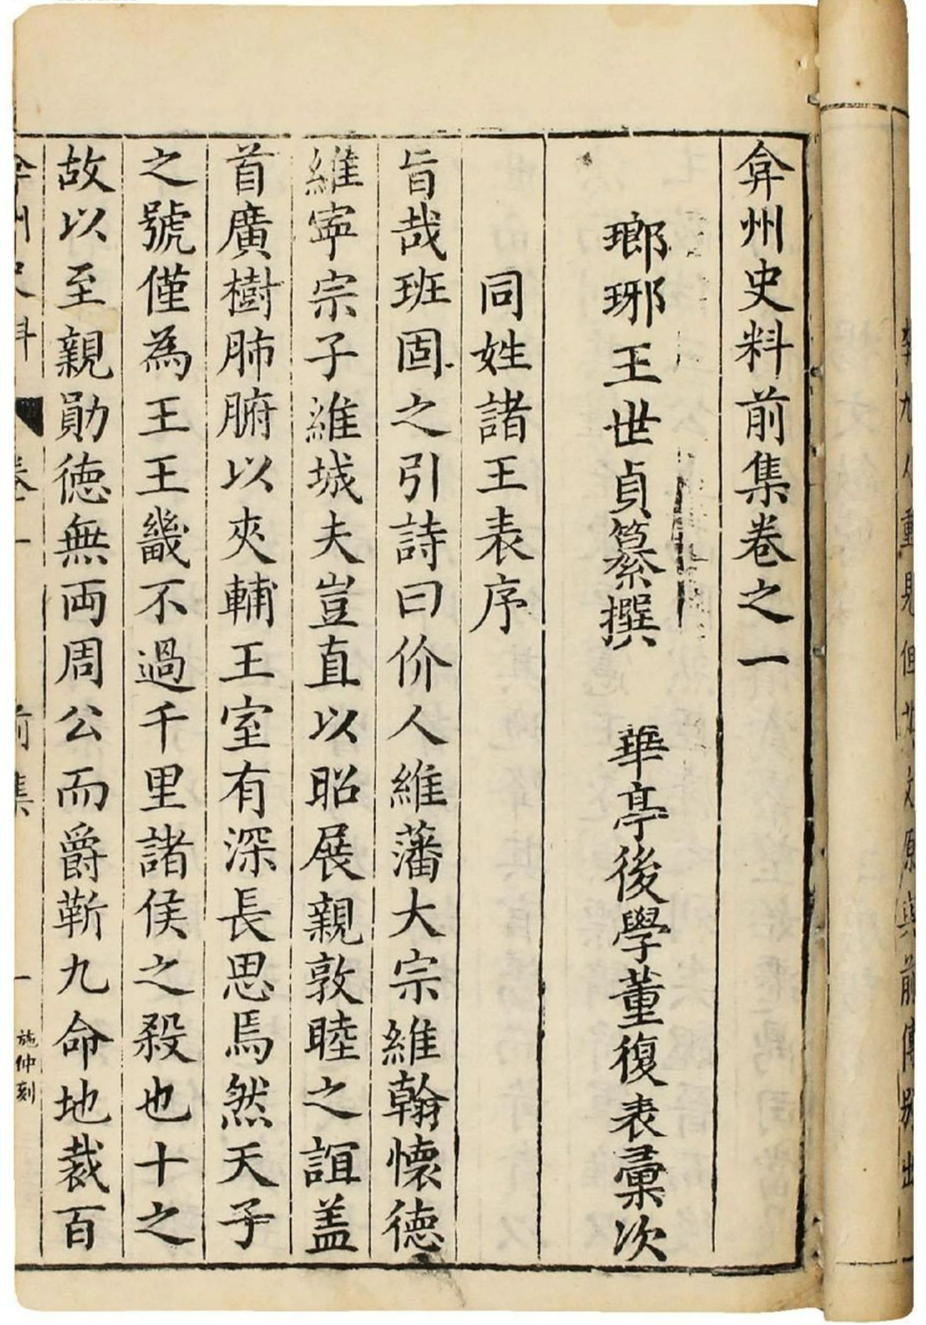 弇州史料前集卷之一
瑯琊王世貞纂撰　華亭後學董復表彙次
同姓諸王表序
旨哉班固之引詩曰价人維藩大宗維翰懷德
維寧宗子維城夫豈直以昭展親敦睦之誼盖
首廣樹肺腑以夾輔王室有深長思焉然天子
之號僅為王王畿不過千里諸侯之殺也十之
故以至親勛徳無両周公而爵靳九命地裁百
弇州史料　卷一　前集　一　施仲刻